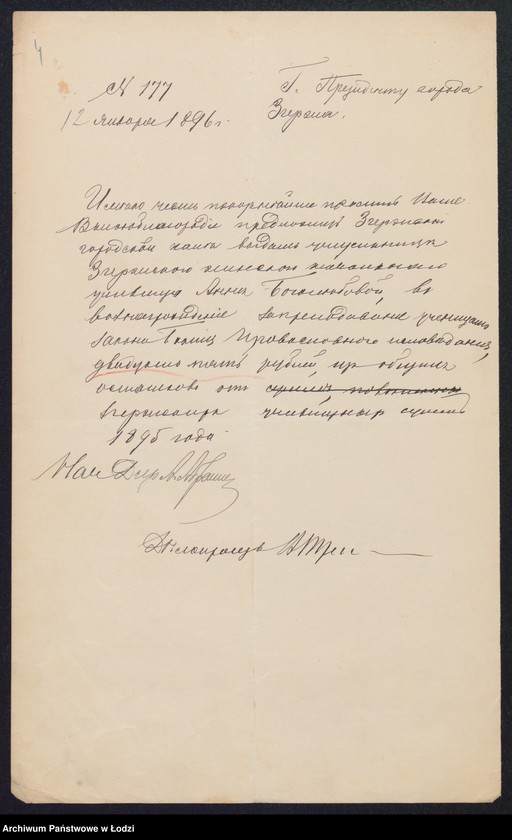 4
№ 177
12 января 1896 г.
Г. Президенту города
Згержа.
Имею честь покорнейше просить Ваше
Высокоблагородіе предложить Згержской
городской кассѣ выдать учительницѣ
Згержского женского начального
училища Аннѣ Боголюбовой, въ
вознагражденіе за преподаваніе ученицамъ
Закона Божія Православного исповѣданія,
двадцать пять рублей, изъ общихъ
остатковъ отъ
Згержскихъ училищныхъ суммъ
1895 года.
Нач Дир
Дѣлопроизв
Archiwum Państwowe w Łodzi